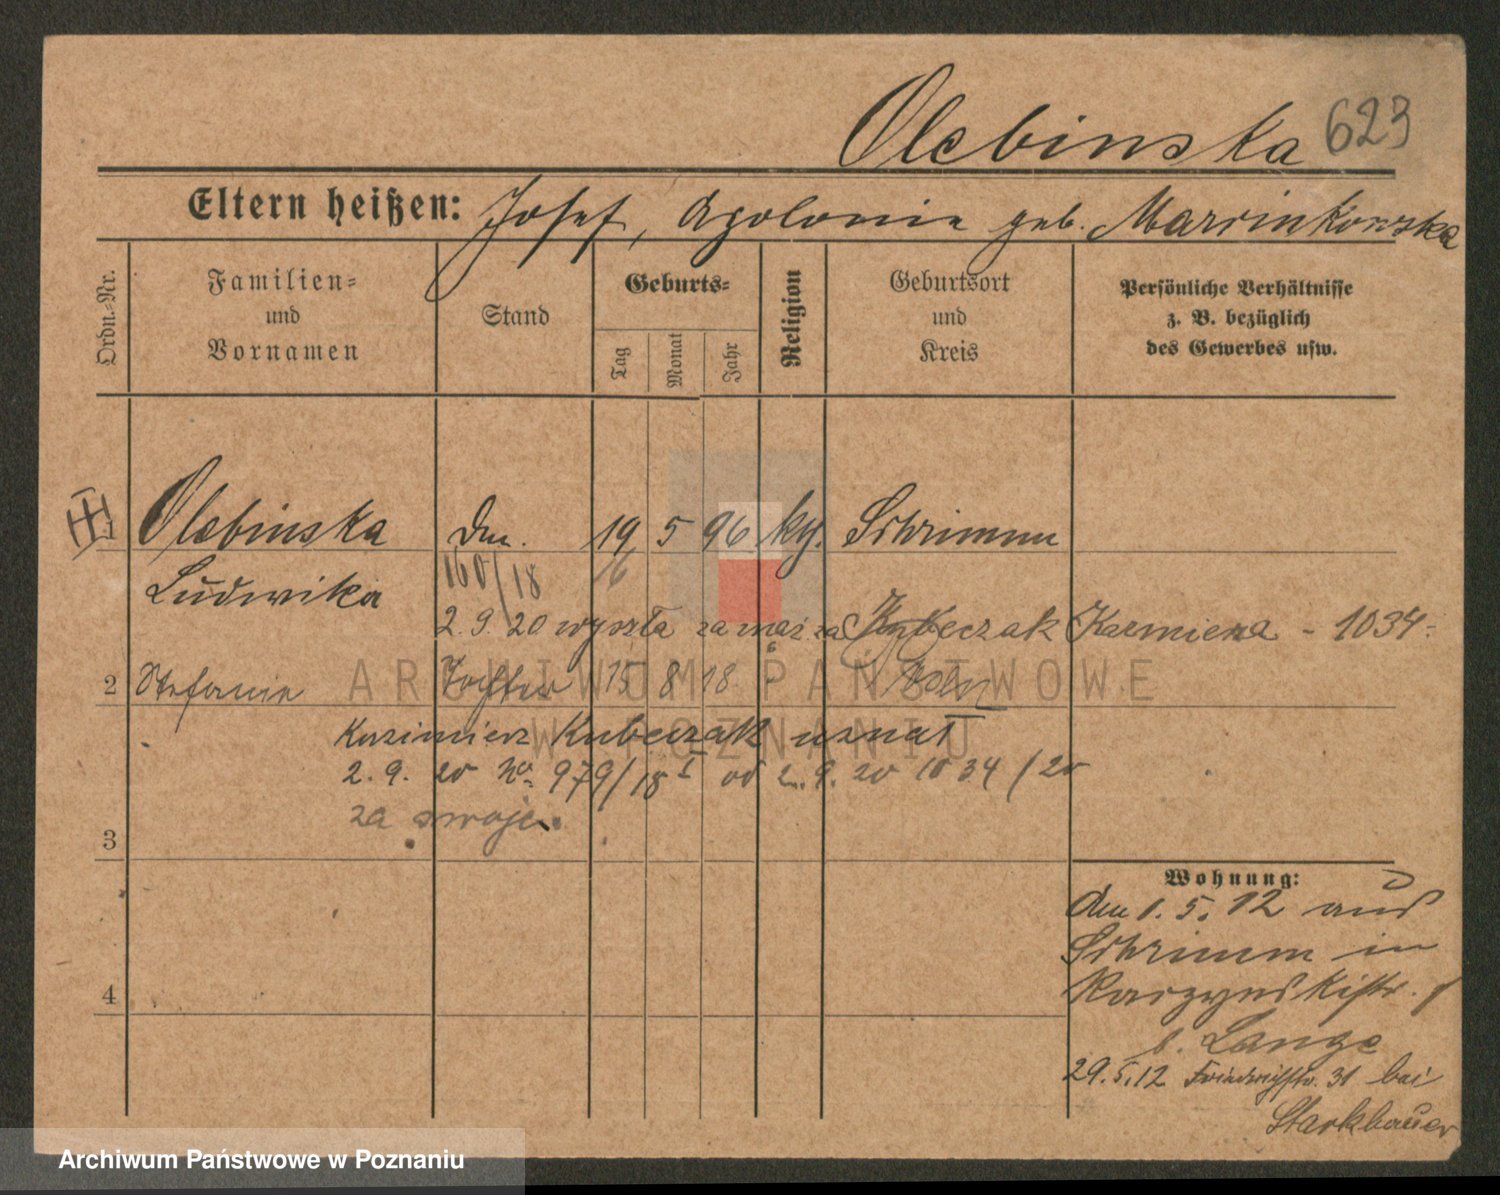 Olebinska 623
Eltern heißen: Josef, Apolonia geb. Marcinkowska
Ordn.-Nr.
Familien-
und
Vornamen
Stand
Geburts-
Tag
Monat
Jahr
Religion
Geburtsort
und
Kreis
Persönliche Verhältnisse
z. B. bezüglich
des Gewerbes usw.
Olebinska Dm. 19 5 96 kth. Schrimm
Ludwika 160/18 16
2.9.20 wyszła za mąż za Kubeczak Kazmierza - 1034
2 Stefania Tochter 15 8 18 Posen
Kazimierz Kubeczak uznał
2.9. 20 No 979/18 I od 2.9.20 1034/20
za swoje.
3
Wohnung:
den 1.5.12 aus
Schrimm in
Raczynskistr.
b. Lange
29.5.12 Friedrichstr. 31 bei
Starkbauer
4
ARCHIWUM PAŃSTWOWE
W POZNANIU
Archiwum Państwowe w Poznaniu